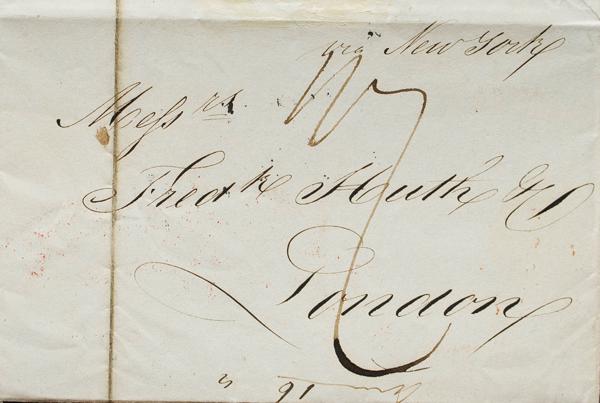 via New York
Mess rs.
Fred k Huth & Co
London
16